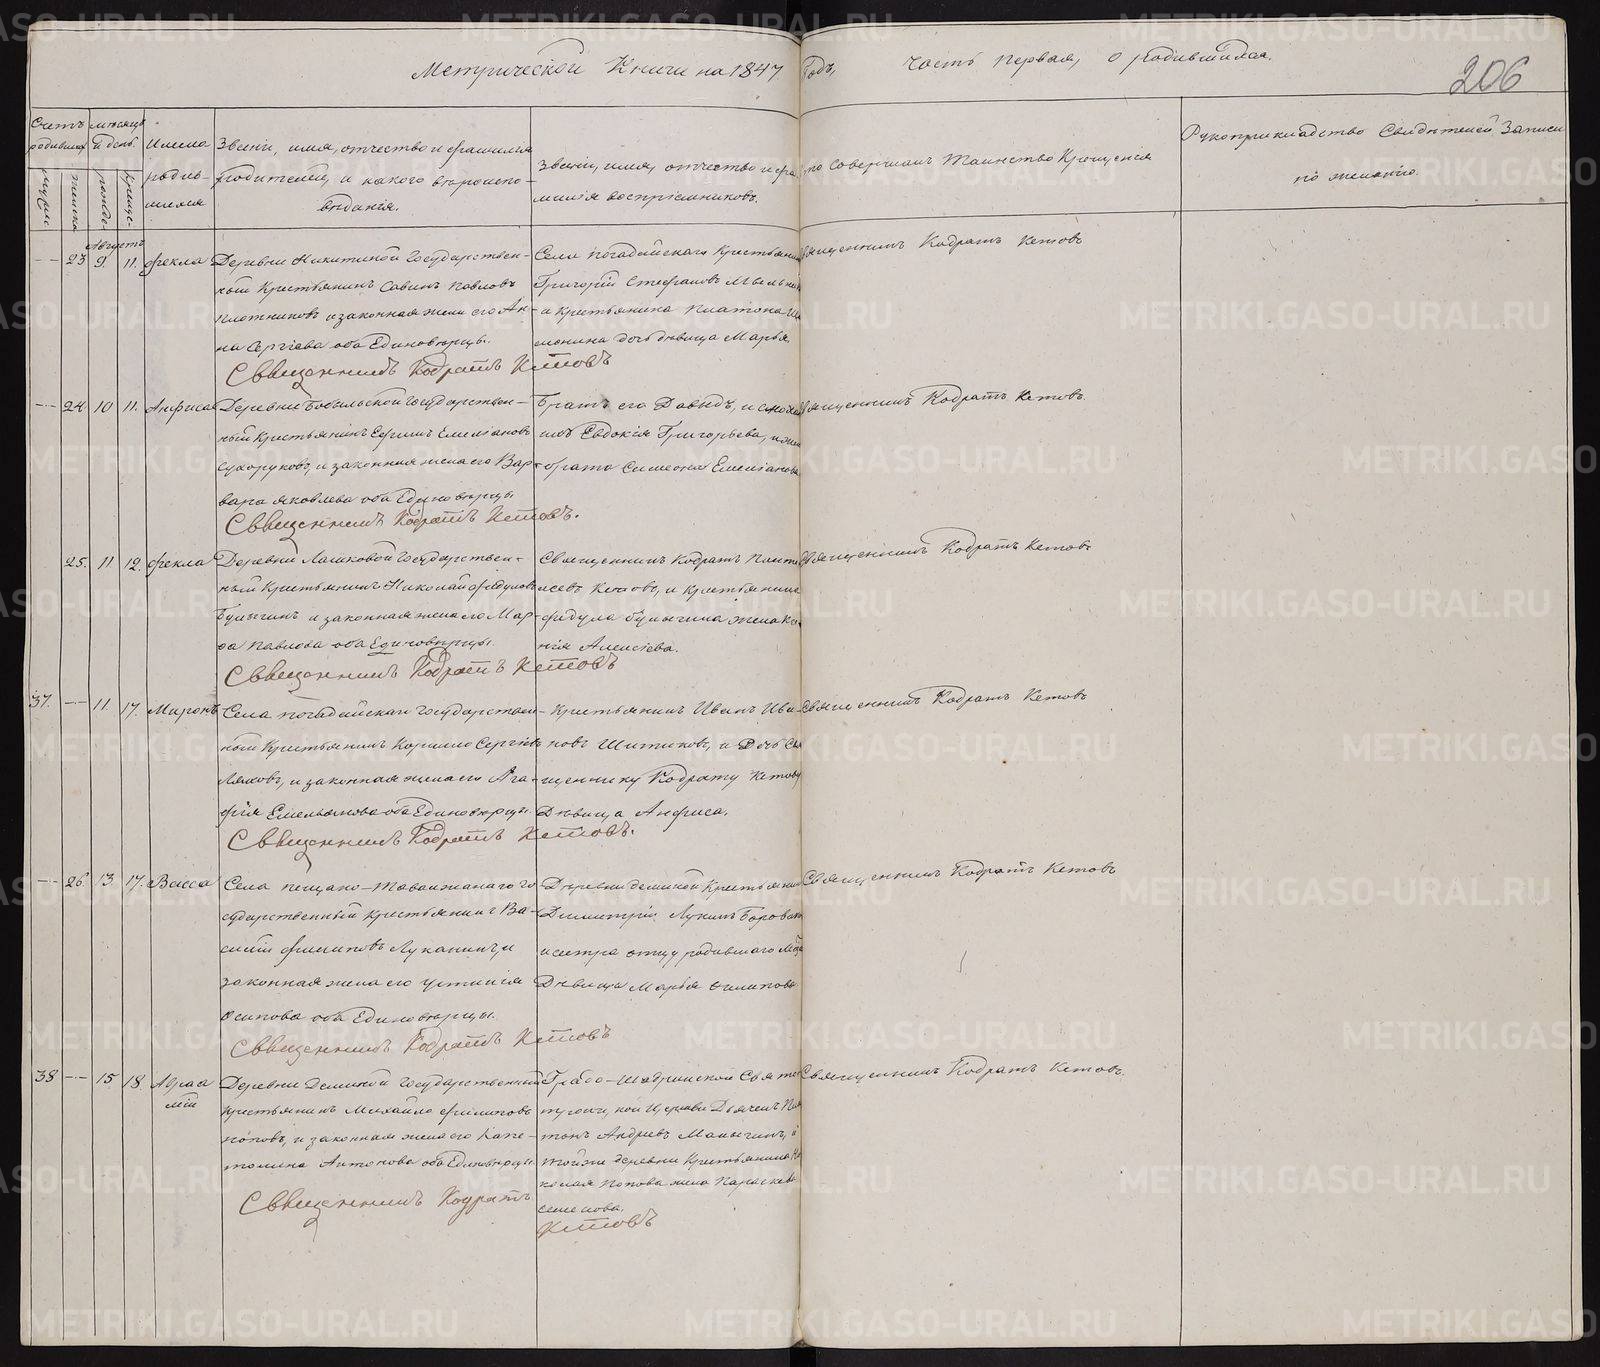 Метрической Книги на 1847 Годъ, часть первая, о родившихся.
206
Счетъ родившихся
мужеска
женска
Месяцъ и день
рожде-
креще-
Имена родив-
шихся
Званiе, имя, отчество и фамилия
родителей, и какого вероиспо-
веданiя.
Званiе, имя, отчество и фа
милiя воспрiемниковъ.
Кто Совершалъ Таинство Крещенiя
Рукоприкладство Свидетелей Записи
по желанiю.
Августъ
23 9. 11. Фекла
Деревни Никитиной Государствен-
ный Крестьянинъ Савинъ Павловъ
Плотниковъ и законная жена его Ан-
на Сергiева оба Единоверцы.
Священникъ Кодратъ Кетовъ
Григорiй Стефановъ
и Крестьянина Платона
дочь девица Марья
Священникъ Кодратъ Кетовъ
24 10 11. Анфиса
Государствен-
ный Крестьянинъ Ефимъ Емелiановъ
Сухоруковъ, и законная жена его Вар-
вара Яковлева оба Единоверцы
Священникъ Кодратъ Кетовъ.
Братъ его Давидъ, и
Евдокiя Григорьева, и
брата Симеона Емелiанова
Священникъ Кодратъ Кетовъ
25. 11 12. Фекла
Деревни Лашковой Государствен-
ный Крестьянинъ Николай Федуловъ
Булыгинъ и законная жена его Мар-
фа Павлова оба Единоверцы.
Священникъ Кодратъ Кетовъ
Священникъ Кодратъ
Кетовъ, и крестьянина
Федула Булыгина жена
Алексiева.
Священникъ Кодратъ Кетовъ
37. 11. 17. Миронъ
Села Государствен-
ный Крестьянинъ Корнило Сергiевъ
Ляховъ, и законная жена его Ага-
фiя Емельянова оба Единоверцы.
Священникъ Кодратъ Кетовъ.
Крестьянинъ Иванъ Ива-
новъ Шитиковъ, и Дочь Свя
щеннику Кодрату Кетову
Девица Анфиса.
Священникъ Кодратъ Кетовъ
26. 13. 17. Васса
Села Песчано-Таволжанаго го
сударственный крестьянинъ Ва-
силiй Филиповъ Луканинъ, и
законная жена его Устинiя
Осипова оба Единоверцы.
Священникъ Кодратъ Кетовъ
Деревни Деминой Крестьянинъ
Димитрiй Лукинъ
и сестра отцу родившаго
Девица Марья Филипова
Священникъ Кодратъ Кетовъ
38 15. 18. Авраа
мiй
Деревни Деминой Государственный
крестьянинъ Михайло Филиповъ
Поповъ, и законная жена его Капе-
толина Антонова оба Единоверцы.
Священникъ Кодратъ
Кетовъ
Градо-Шадринской Свято
троицкой Церкви Дьячекъ Пла
тонъ Андреевъ Малыгинъ, и
тойже деревни Крестьянина Ни
колая Попова жена Параскева
Семенова.
Священникъ Кодратъ Кетовъ.
METRIKI.GASO-URAL.RU